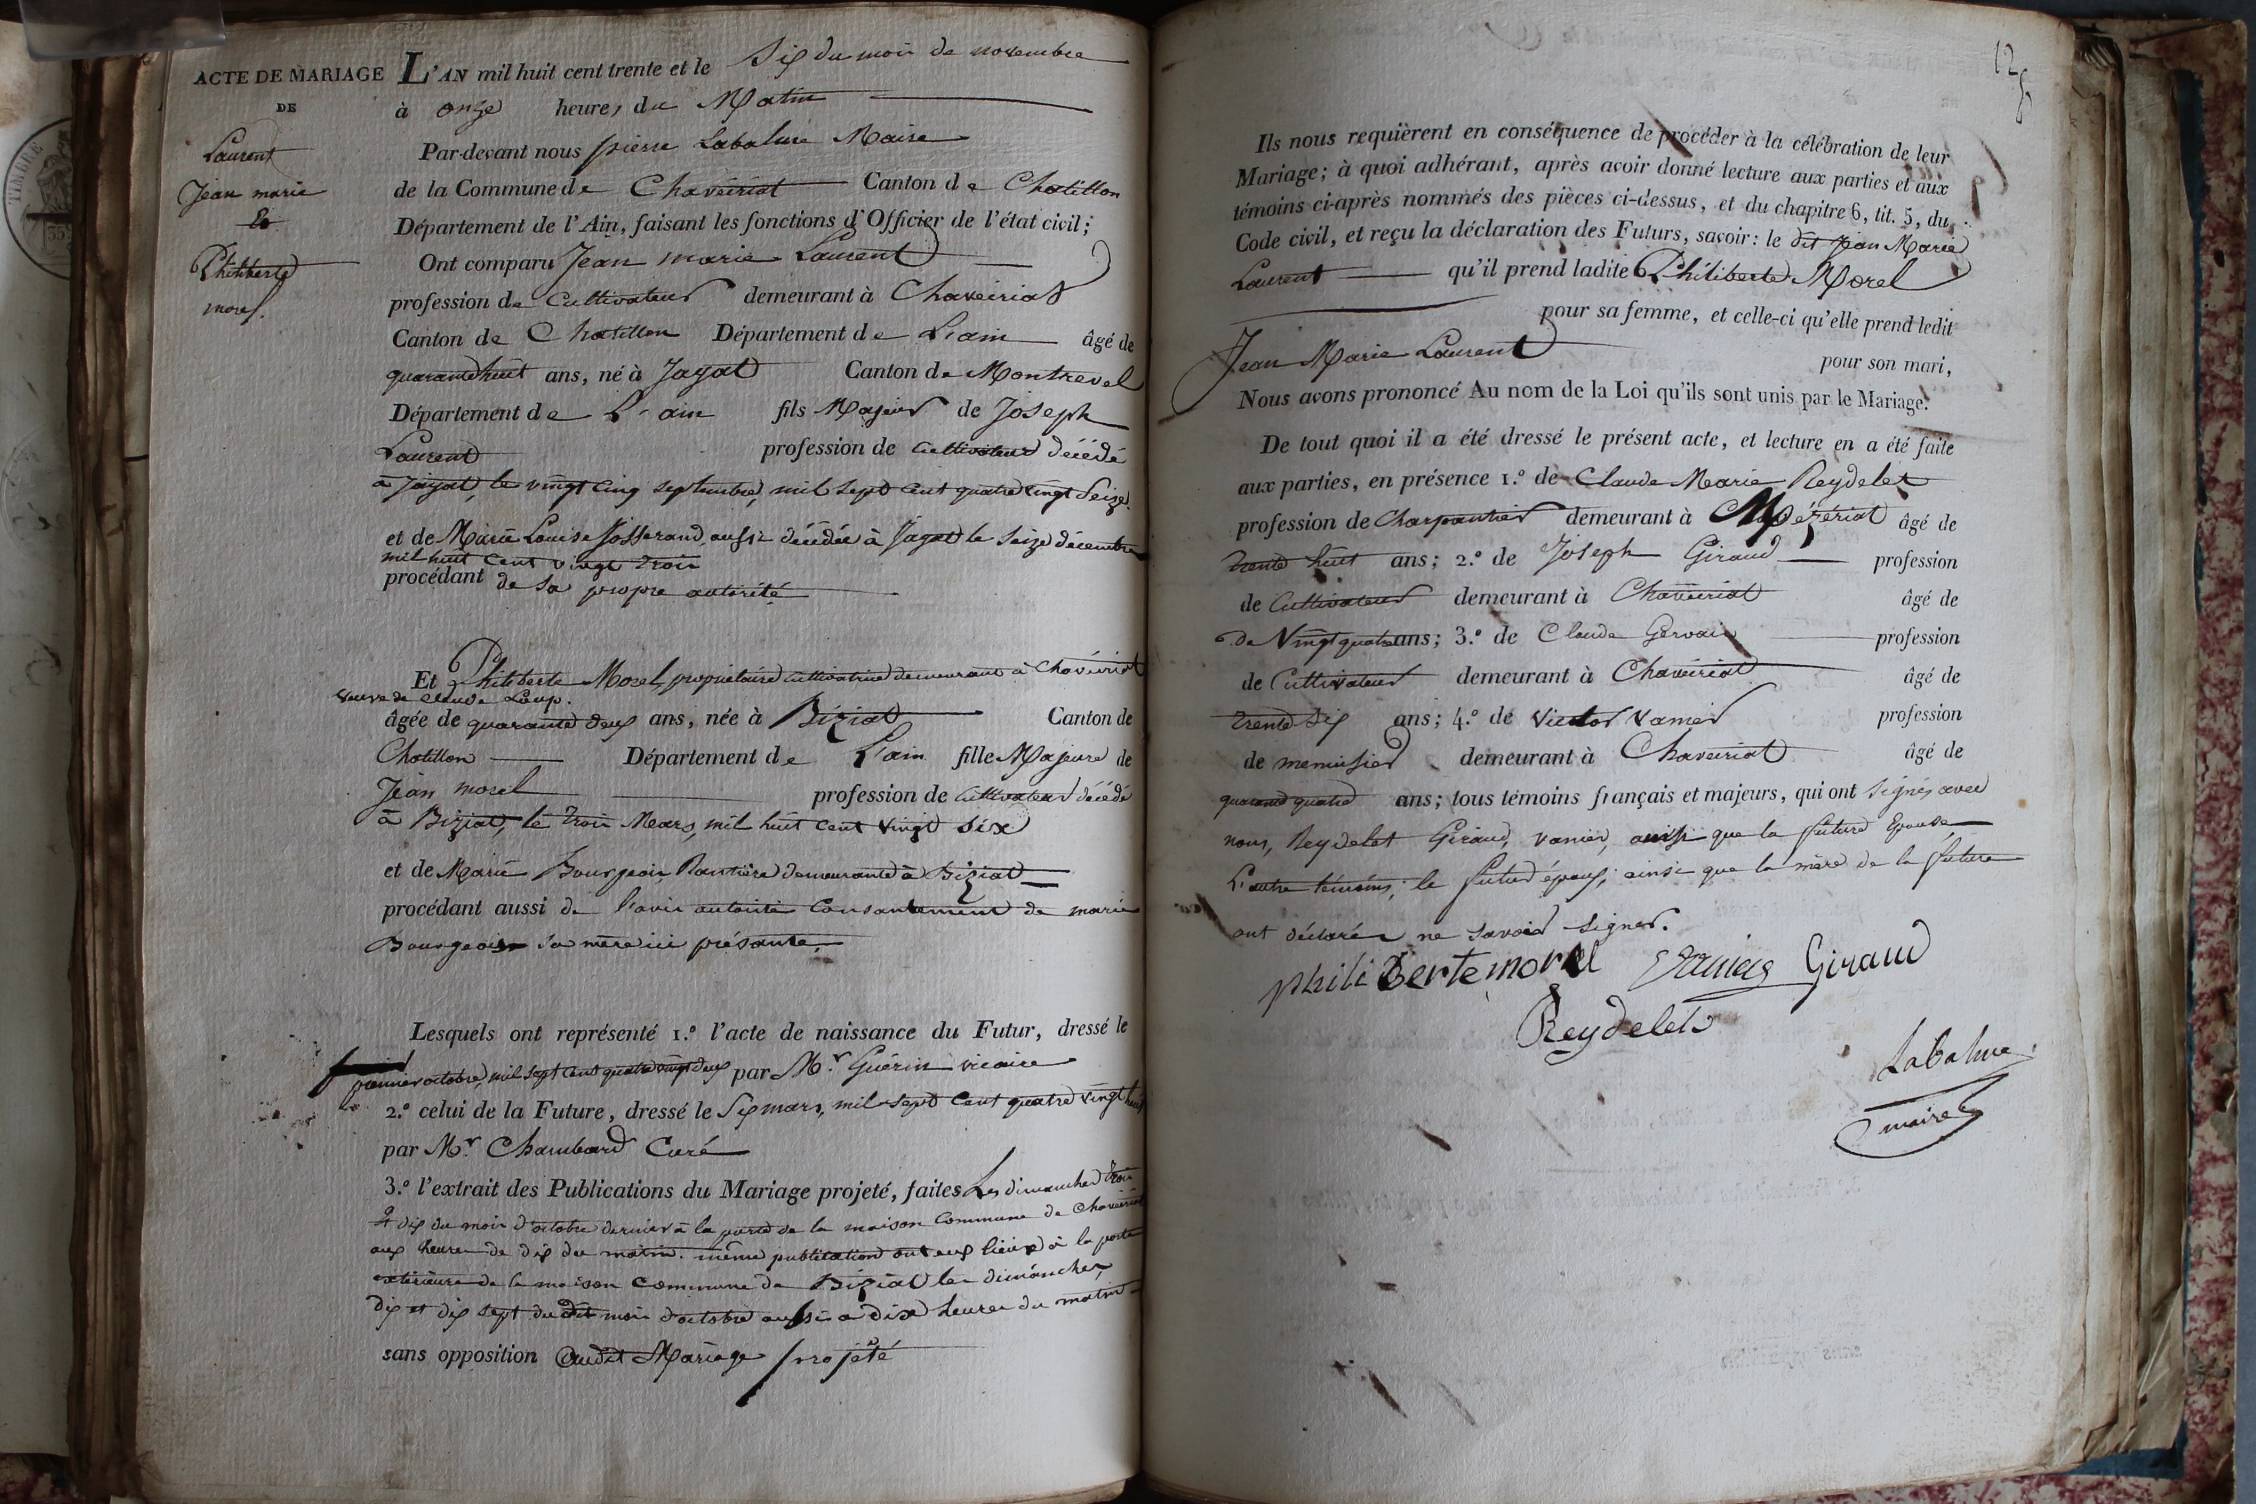 ACTE DE MARIAGE
DE
Laurent
Jean marie
&
Philiberte
morel.
L'AN mil huit cent trente et le Six du mois de novembre
à onze heures du Matin
Par-devant nous pierre Labalme Maire
de la Commune de Chaveiriat Canton de Chatillon
Département de l'Ain, faisant les fonctions d'Officier de l'état civil;
Ont comparu Jean marie Laurent
profession de Cultivateur demeurant à Chaveiriat
Canton de Chatillon Département de L'ain âgé de
quarante huit ans, né à Jayat Canton de Montrevel
Département de L'ain fils Majeur de Joseph
Laurent profession de Cultivateur décédé
à Jayat, le vingt cinq septembre, mil sept cent quatre vingt Seize.
et de Marie Louise Josserand, aussi décédée à Jayat le Seize décembre
mil huit cent vingt trois
procédant de sa propre autorité
Et Philiberte Morel, propriétaire cultivatrice demeurant à Chaveiriat
veuve de Claude Loup.
âgée de quarante deux ans, née à Biziat Canton de
Chatillon Département de L'ain fille Majeure de
Jean morel profession de Cultivateur décédé
à Biziat, le trois Mars, mil huit cent vingt six
et de Marie Bourgeois, Rantière demeurante à Biziat
procédant aussi de l'avis autorité Consantement de marie
Bourgeois sa mère ici présante.
Lesquels ont représenté 1.º l'acte de naissance du Futur, dressé le
premier octobre, mil sept cent quatre vingt deux par Mr. Guérin vicaire
2.º celui de la Future, dressé le Six mars, mil sept cent quatre vingt huit
par Mr. Chambard Curé
3.º l'extrait des Publications du Mariage projeté, faites Les dimanches trois
et dix du mois d'octobre dernier à la porte de la maison Commune de Chaveiriat
aux heures de dix du matin. même publication ont eux lieux à la porte
extérieure de la maison commune de Biziat les dimanches,
dix et dix sept du dit mois d'octobre aussi à dix heures du matin
sans opposition Audit Mariage projeté
128
Ils nous requièrent en conséquence de procéder à la célébration de leur
Mariage; à quoi adhérant, après avoir donné lecture aux parties et aux
témoins ci-après nommés des pièces ci-dessus, et du chapitre 6, tit. 5, du
Code civil, et reçu la déclaration des Futurs, savoir: le dit Jean Marie
Laurent qu'il prend ladite Philiberte Morel
pour sa femme, et celle-ci qu'elle prend ledit
Jean Marie Laurent pour son mari,
Nous avons prononcé Au nom de la Loi qu'ils sont unis par le Mariage.
De tout quoi il a été dressé le présent acte, et lecture en a été faite
aux parties, en présence 1.º de Claude Marie Reydelet
profession de Charpantier demeurant à Mézériat âgé de
trente huit ans; 2.º de Joseph Giraud profession
de Cultivateur demeurant à Chaveiriat âgé de
de Vingt quatre ans; 3.º de Claude Gervais profession
de Cultivateur demeurant à Chaveiriat âgé de
trente six ans; 4.º de Victor Vanier profession
de menuisier demeurant à Chaveiriat âgé de
quarante quatre ans; tous témoins français et majeurs, qui ont signés avec
nous, Reydelet Giraud, Vanier, ainsi que la future Epouse
L'autre témoins; le futur époux; ainsi que la mère de la future
ont déclarés ne savoir signer.
philiberte morel Vanier Giraud
Reydelet
Labalme
maire